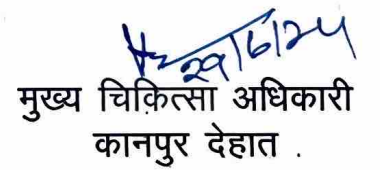 29/6/24
मुख्य चिकित्सा अधिकारी
कानपुर देहात .